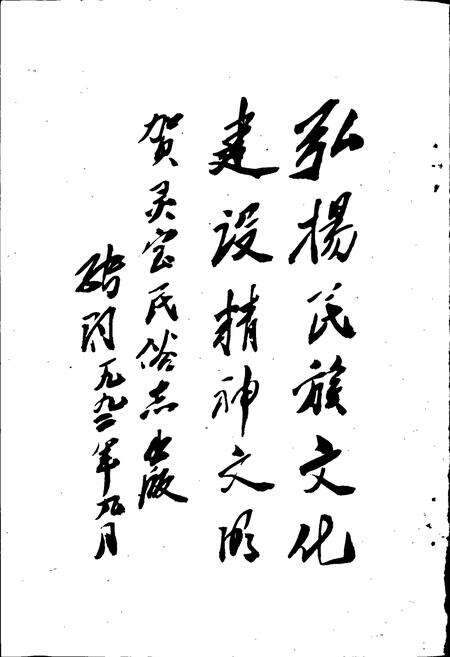 弘揚民族文化
建设精神文明
贺灵宝民俗志出版
一九九二年九月